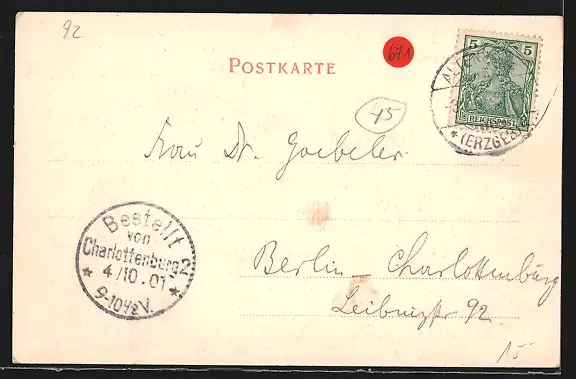 92
671
POSTKARTE
5 5
REICHSPOST
ALTE
* (ERZGEB
45
Frau Dr. Goebeler
Bestellt
von
Charlottenburg 2
* 4/10.01 *
9-10½V.
Berlin - Charlottenburg
Leibnizstr 92.
15